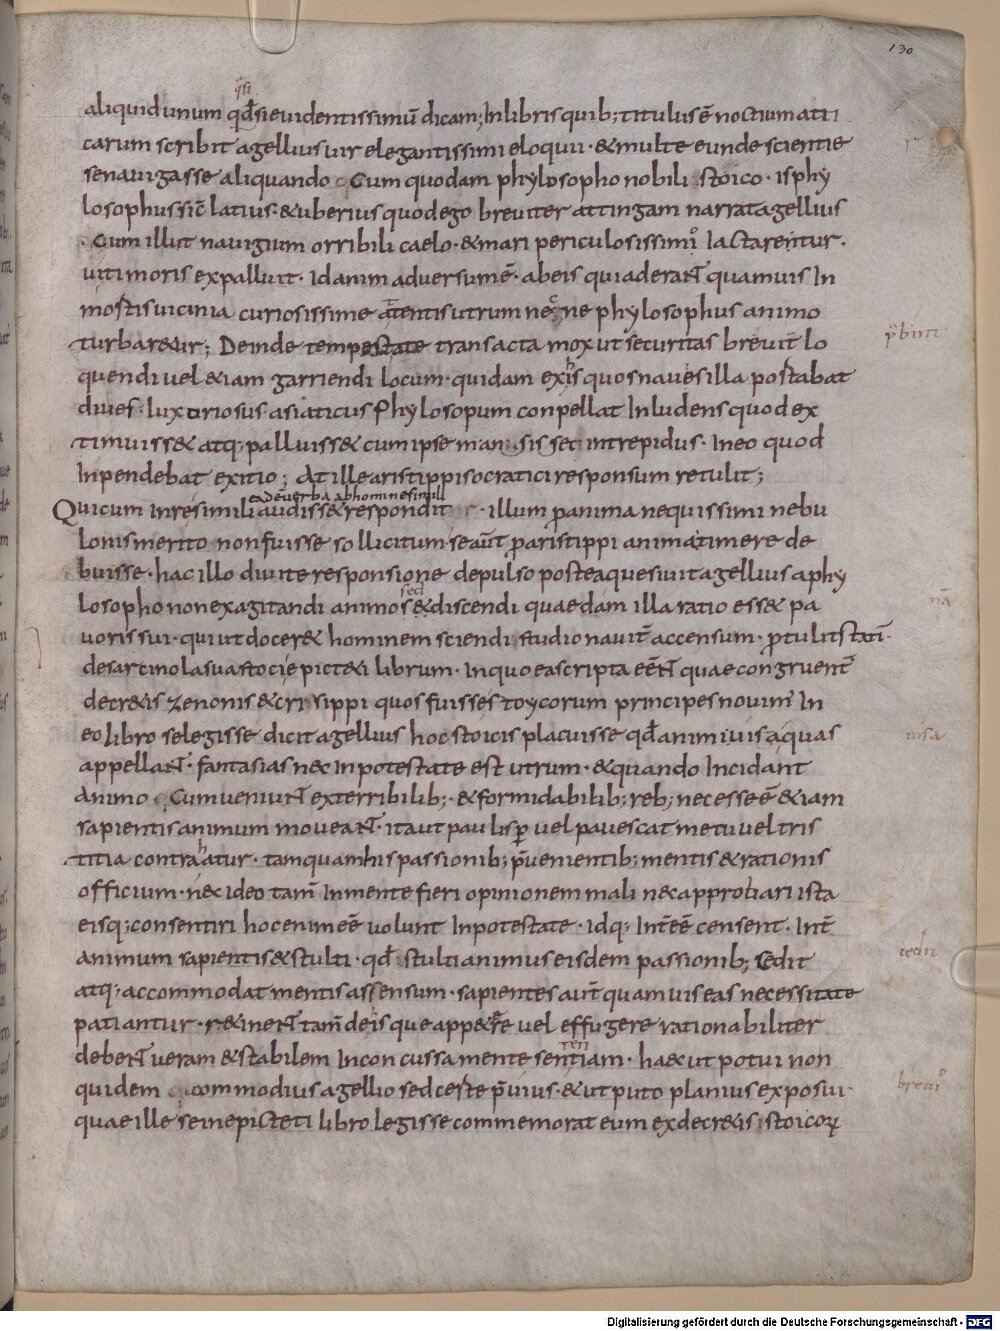 130
aliquid unum qđsi euidentissimū dicam; In libris quib; titulus ē noctium atti
qͣsi
carum scribit agellius uir elegantissimi eloquii · & multe eunde scientie
se nauigasse aliquando Cum quodam phylosopho nobili stoico · is phy
losophus sic̄ latius · & uberius quod ego breuiter attingam narrat agellius
· Cum illut nauigium orribili caelo · & mari periculosissimͦ iactarentur ·
ui timoris expalluit · Id anim aduersum ē · ab eis qui aderant quamuis In
mostis uicinia curiosissime attentis utrum nec ne phylosophus animo
turbar&ur; Deinde tempestate transacta mox ut securitas breuit̄ lo
p̄buit
quendi uel &iam garriendi locum · quidam ex his quos naues illa postabat
diues luxuriosus asiaticus Phylosopum conpellat Inludens quod ex
timuiss& atq; palluiss& cum ipse mansisset intrepidus · In eo quod
Inpendebat exitio; At ille aristippi socratici responsum retulit;
eadē uerba ab homine simili
Quicum In re simili audiss& respondit · illum p anima nequissimi nebu
lonis merito non fuisse sollicitum se aūt p aristippi anima timere de
buisse · hac illo diuite responsione depulso postea quesiuit agellius a phy
losopho non exagitandi animo sed & discendi quaedam illa ratio ess& pa
nā
uoris sui · qui ut docer& hominem sciendi studio nauit̄ accensum · ptulit statī ·
de sarcinola sua stocie picteti librum · In quo ea scripta eēnt quae congruent̄
decr&is zenonis & crisippi quos fuisse stoycorum principes nouim̄ In
eo libro se legisse dicit agellius hoc stoicis placuisse qđ animi uisa quas
uisa
appellant · fantasias nec In potestate est utrum · & quando Incidant
Animo Cum ueniunt ex terribilib; · & formidabilib; reb; necesse ē & iam
sapientis animum moueant · ita ut paulisp uel pauescat metu uel tris
titia contrahatur · tamquam his passionib; p̄uenientib; mentis & rationis
officium · nec ideo tam̄ In mente fieri opinionem mali nec approbari ista
eisq; consentiri hoc enim eē uolunt In potestate · Idq; Int̄eē censent · Int̄
animum sapientis & stulti · qđ stulti animus eisdem passionib; cedit
cedit
atq; accommodat mentis assensum · sapientes aut̄ quamuis eas necessitate
patiantur · r&inent tam̄ de is que appetere uel effugere rationabiliter
debent ueram & stabilem Inconcussa mente sentiam · haec ut potui non
ten
quidem commodius agellio sed certe p̄uius · & ut puto planius exposui ·
breuiͦ
quae ille se in epicteti libro legisse commemorat eum ex decr&is stoicoꝝ
Digitalisierung gefördert durch die Deutsche Forschungsgemeinschaft - DFG